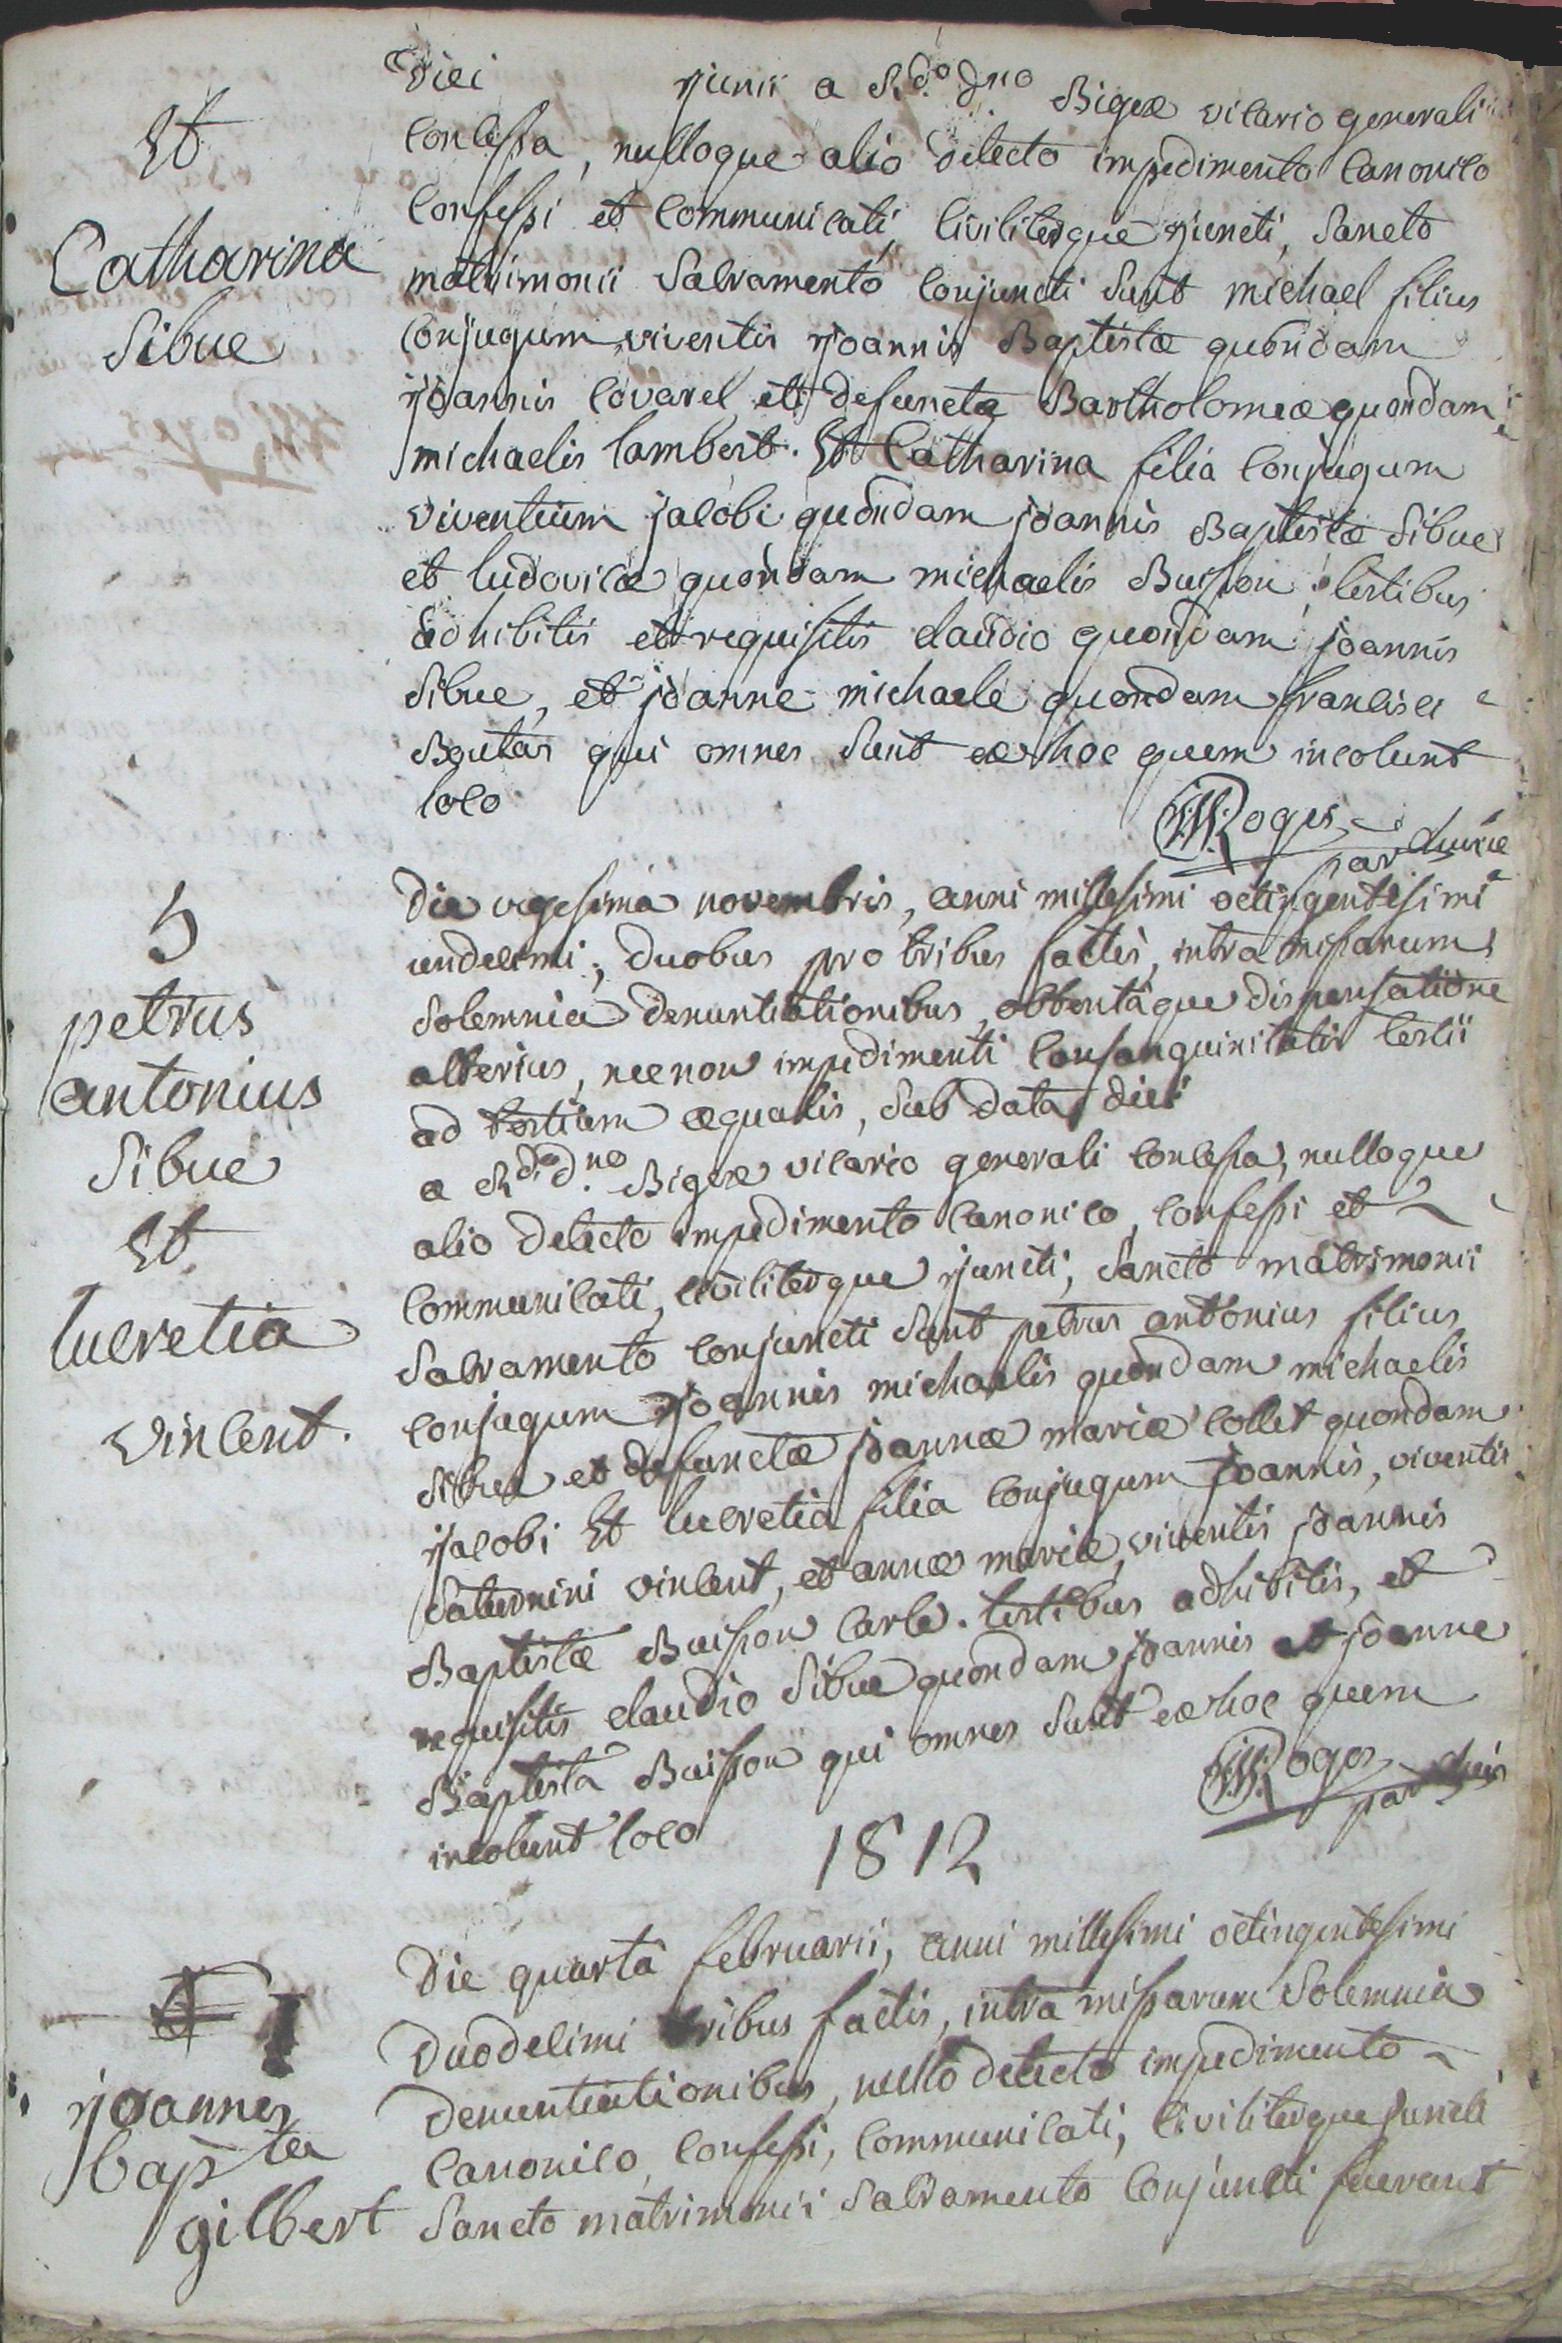 Diei junii a Rdo. dno Bigex vicario generali
Et
concessa, nulloque alio detecto impedimento canonico
confessi et communicati, civiliterque juncti, Sancto
Catharina
matrimonii Sacramento conjuncti Sunt michael filius
Sibue
conjugum viventis joannis Baptistæ quondam
joannis covarel et defunctæ Bartholomeæ quondam
michaelis lambert. Et Catharina filia conjugum
viventium jacobi quondam joannis Baptistæ Sibue
et ludovicæ quondam michaelis Buisson, testibus
adhibitis et requisitis claudio quondam joannis
Sibue, et joanne michaele quondam francisci
qui omnes Sunt ex hoc quem incolunt
loco
Roges
par
Die vigesima novembris, anni millesimi octingentesimi
5
undecimi, duobus pro tribus factis, intra missarum
petrus
Solemnia denuntiationibus, obtentâque dispensatione
antonius
alterius, necnon impedimenti consanguinitatis tertii
ad tertium æqualis, Sub data diei
Sibue
a Rdo. dno. Bigex vicario generali concessa, nulloque
Et
alio detecto impedimento canonico, confessi et
communicati, civiliterque juncti, Sancto matrimonii
lucretia
Sacramento conjuncti Sunt petrus antonius filius
conjugum joannis michaelis quondam michaelis
vincent.
Sibue et defunctæ joannæ mariæ collet quondam
jacobi Et lucretia filia conjugum joannis, viventis
Saturnini vincent, et annæ mariæ, viventis joannis
Baptistæ Buisson carle. testibus adhibitis, et
requisitis claudio Sibue quondam joannis et joanne
Baptista Buisson qui omnes Sunt ex hoc quem
incolunt loco
Roges
par
1812
Die quarta februarii, anni millesimi octingentesimi
1
duodecimi tribus factis, intra missarum Solemnia
joannes
denuntiationibus, nullo detecto impedimento
bapta
canonico, confessi, communicati, civiliterque juncti
gilbert
Sancto matrimonii Sacramento conjuncti fuerunt